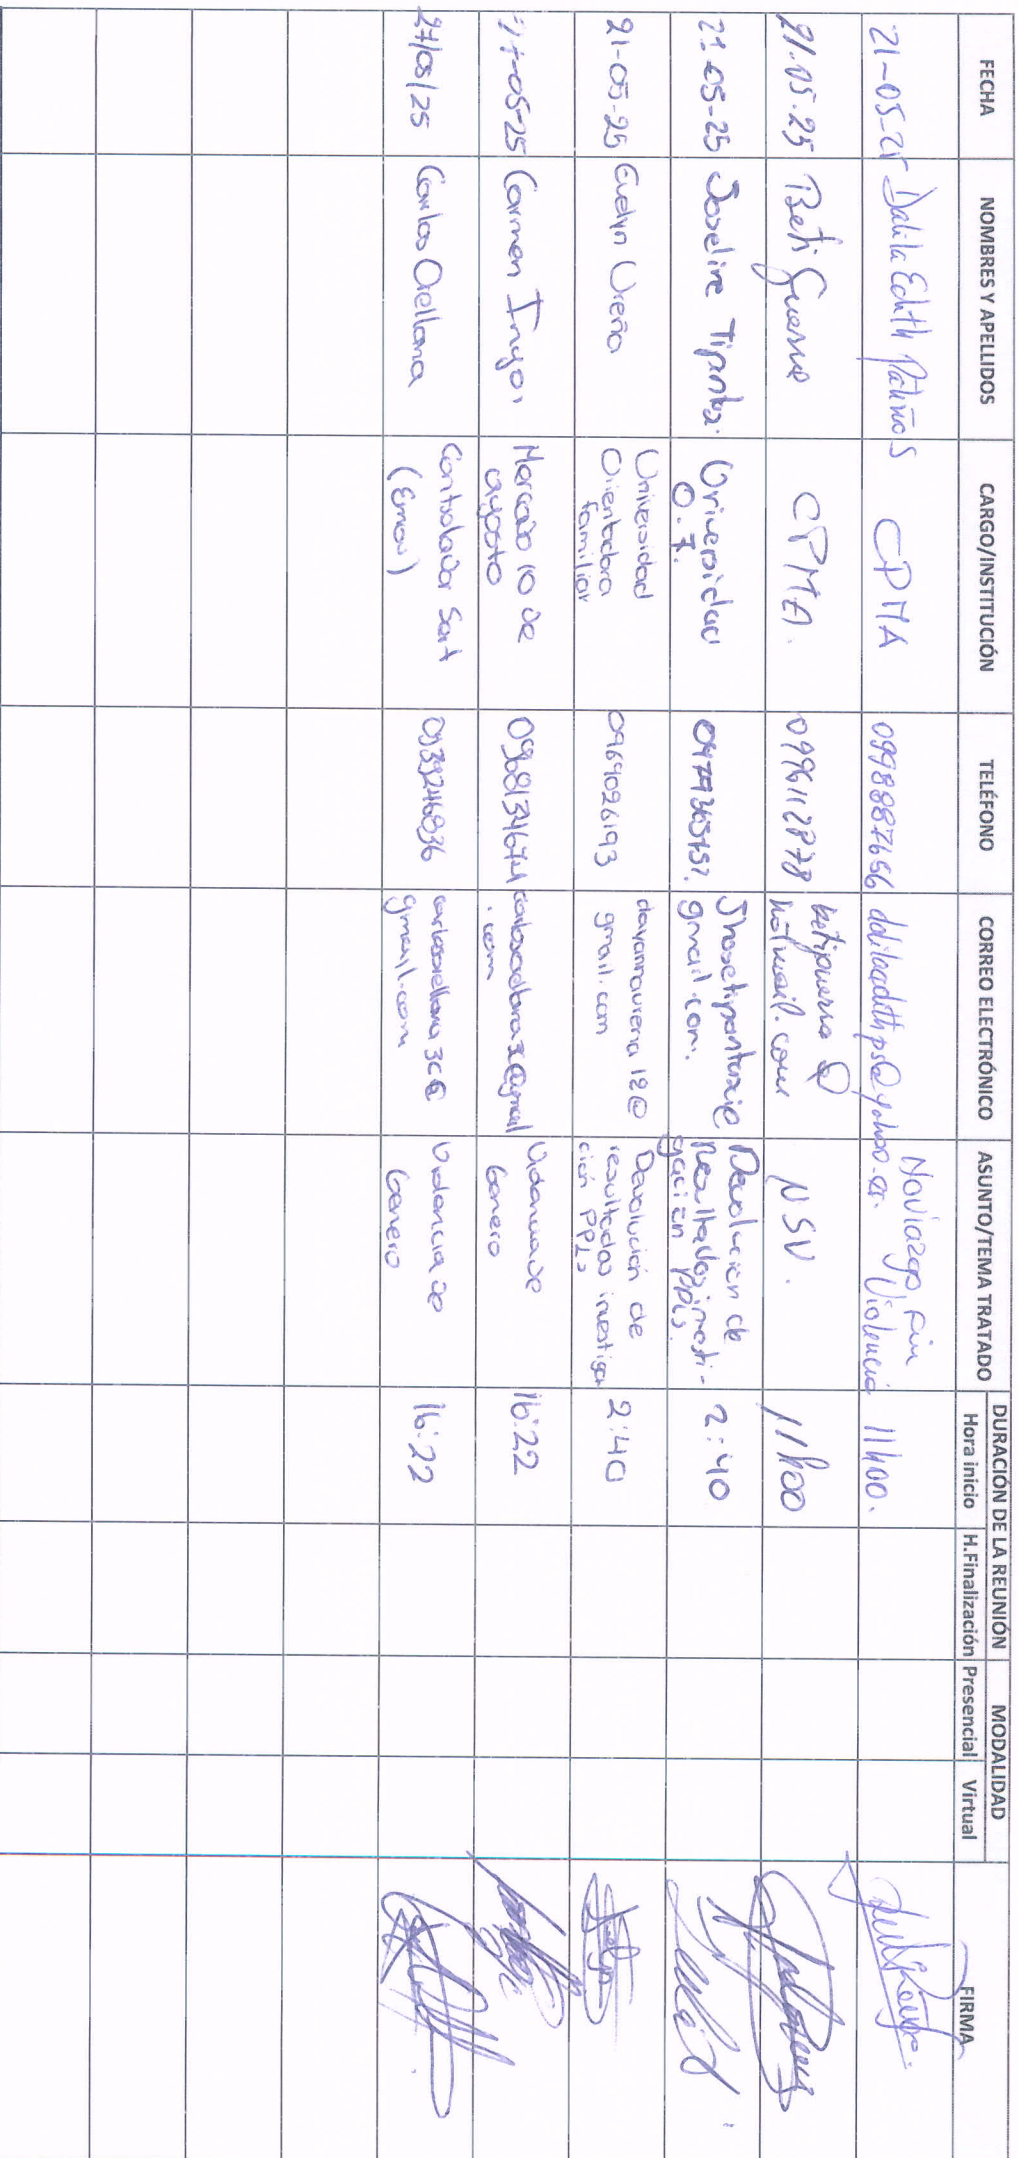 FECHA NOMBRES Y APELLIDOS CARGO/INSTITUCIÓN TELÉFONO CORREO ELECTRÓNICO ASUNTO/TEMA TRATADO DURACIÓN DE LA REUNIÓN MODALIDAD FIRMA
Hora inicio H.Finalización Presencial Virtual
21-05-25 Dalila Edith Patiño S CPMA 0998887656 dalilaedithps@yahoo.es. Noviazgo sin Violencia 11h00.
21.05.25 Beti Guerra CPMA. 0996112878 betiguerra @
hotmail.com NSV. 11h00
21-05-25 Joseline Universidad
O.F. Devolución de
Resultados investi-
gación PPLs. 2:40
21-05-25 Evelyn Ureña Universidad
Orientadora
familiar 0969026193 dayannaurena12@
gmail.com Devolución de
resultados investiga
ción PPLs 2:40
27-05-25 Carmen Mercado 10 de
agosto 0968134674 .com Violencia de
Genero 16:22
27/05/25 Carlos Orellana Controlador
(Emov) 0939246836 carlosorellana3c@
gmail.com Violencia de
Genero 16:22